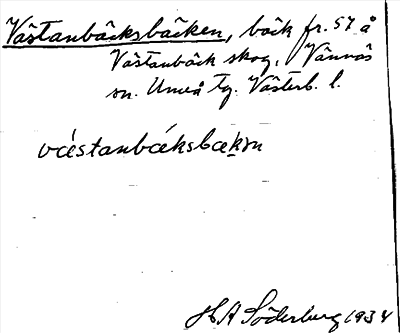 Västanbäcksbäcken, bäck fr. 57 å
Västanbäck skog, Vännäs
sn. Umeå tg. Västerb. l.
vǽstanbǽksbækn
H A Söderberg 1934